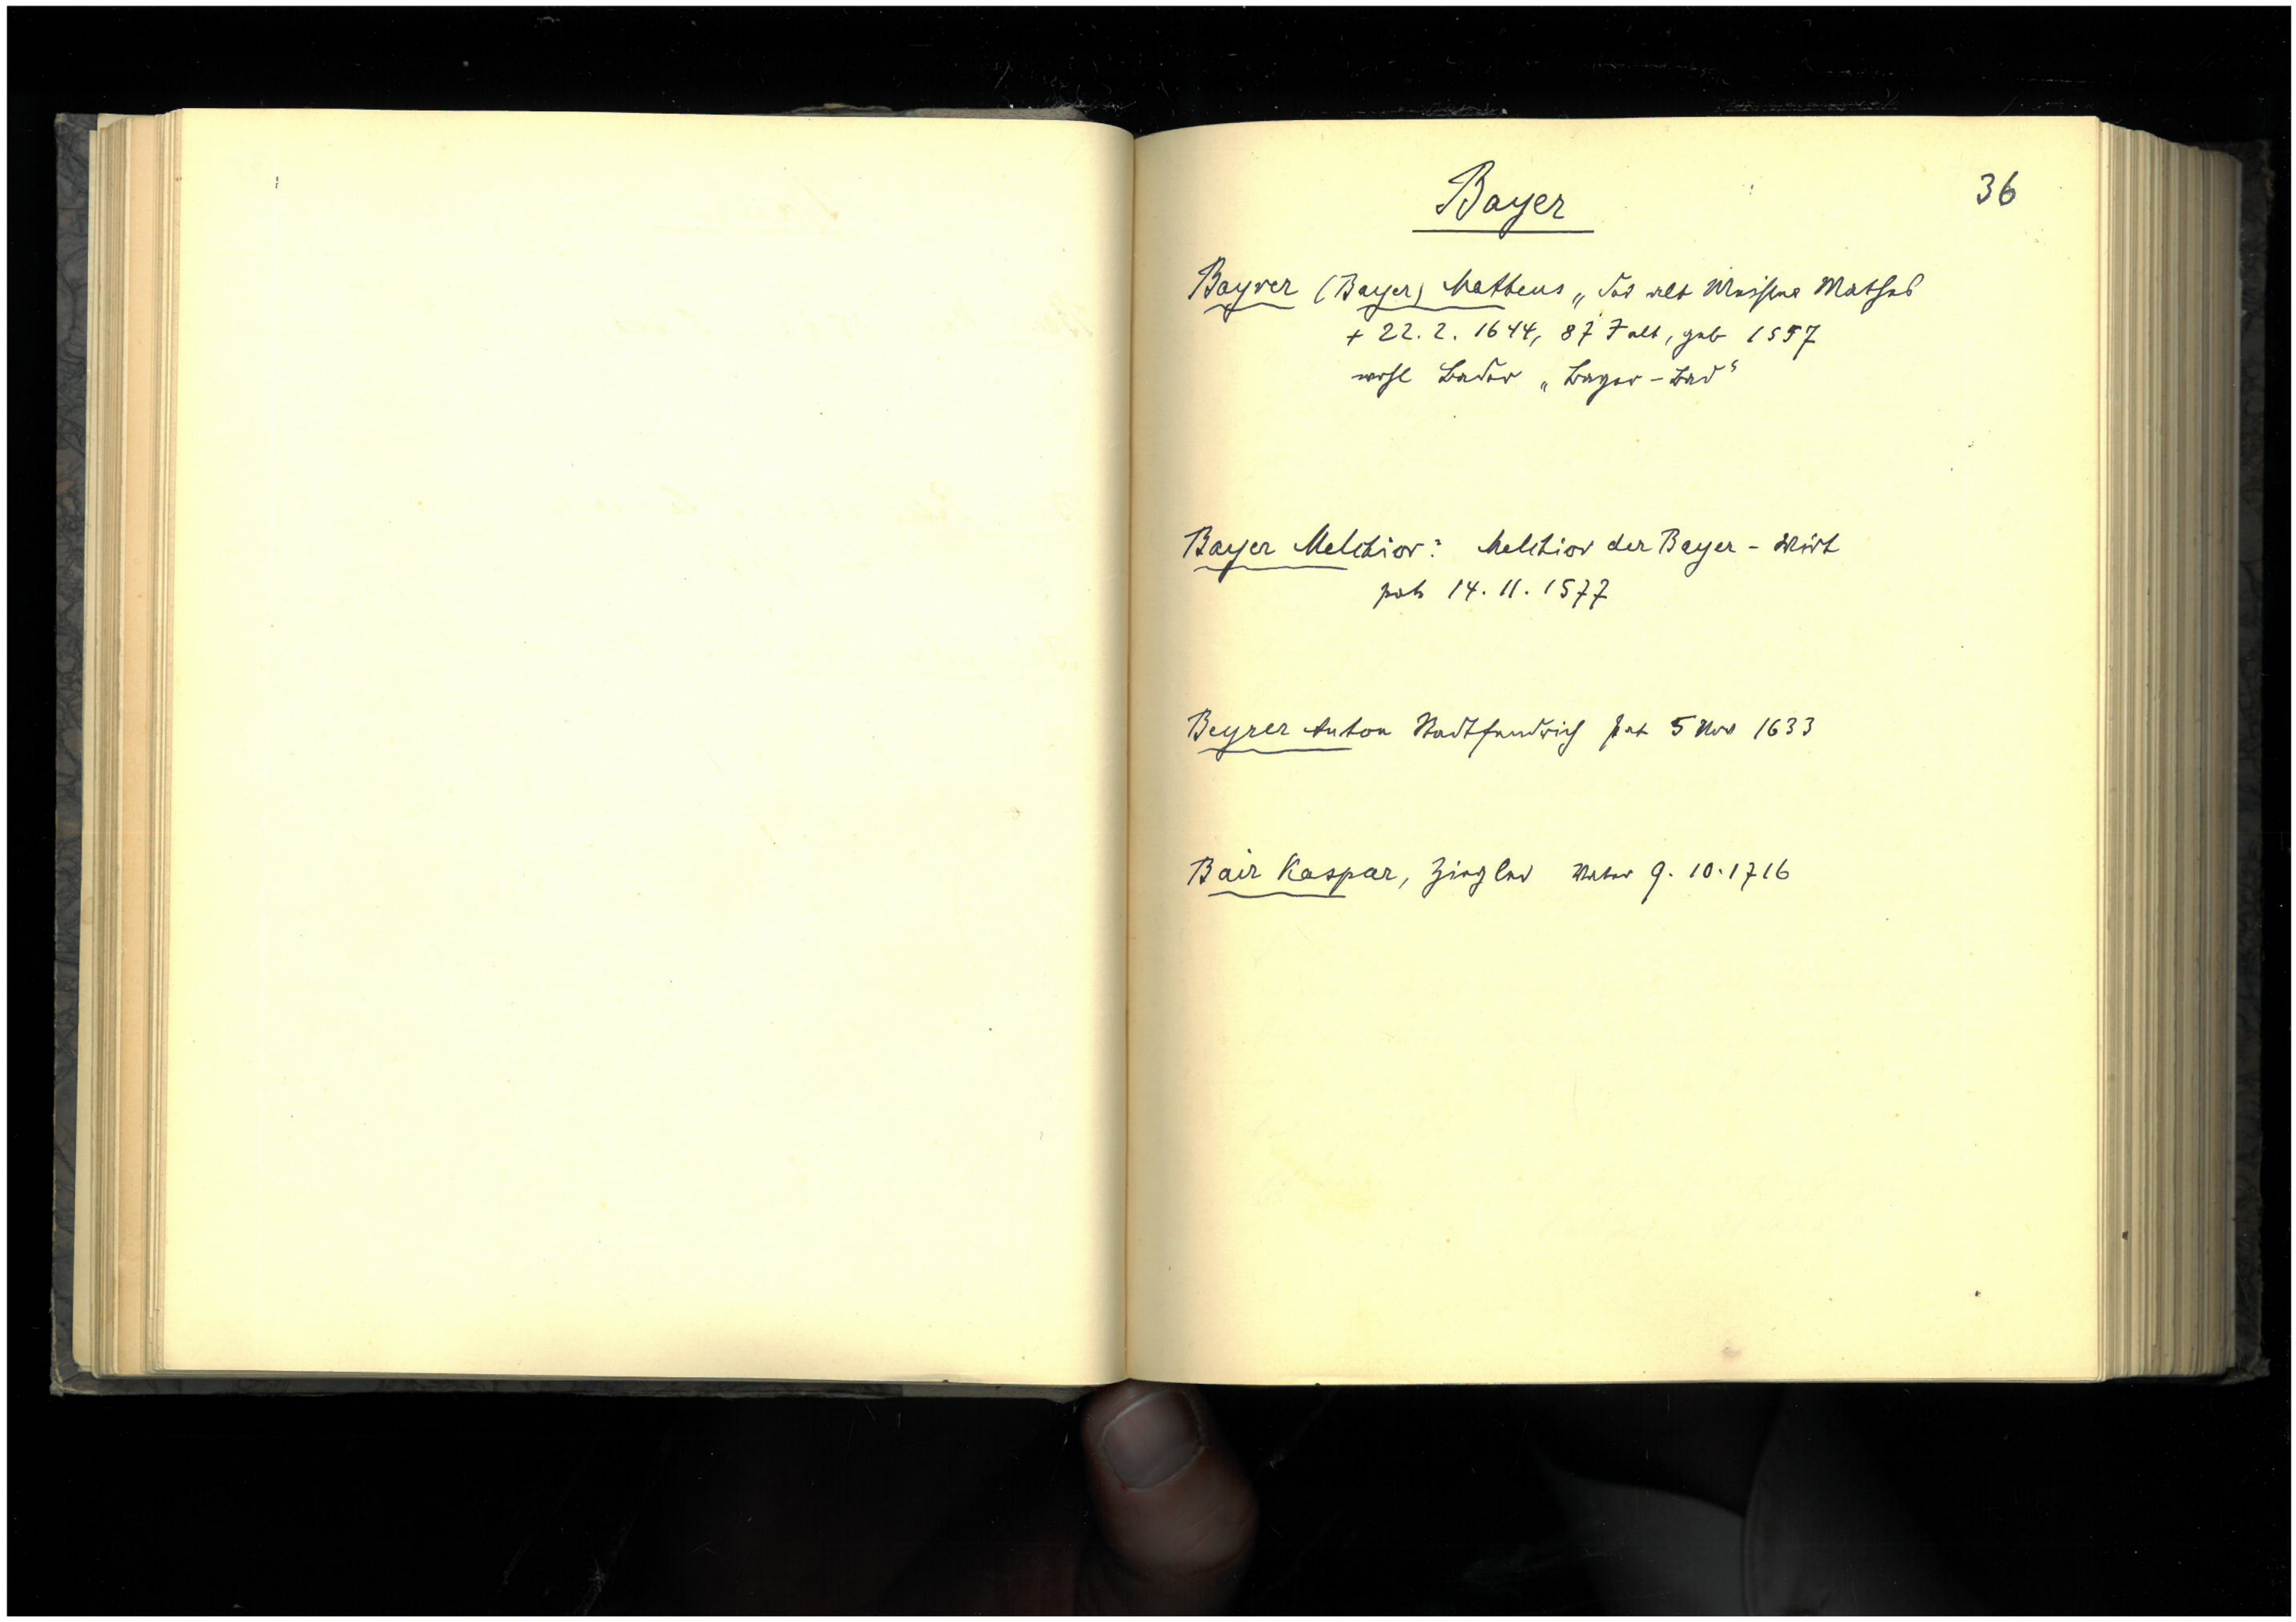 Bayer
36
Bayrer (Bayer) Mattheus „der alt Mathes
+ 22. 2. 1644, 87 J alt, geb 1557
wohl Bader „Bayer-Bad“
Bayer Melchior: Melchior der Bayer - Wirt
pat 14. 11. 1577
Beyrer Anton Stadtfendrich pat 5 Nov 1633
Bair Kaspar, Ziegler Vater 9. 10. 1716